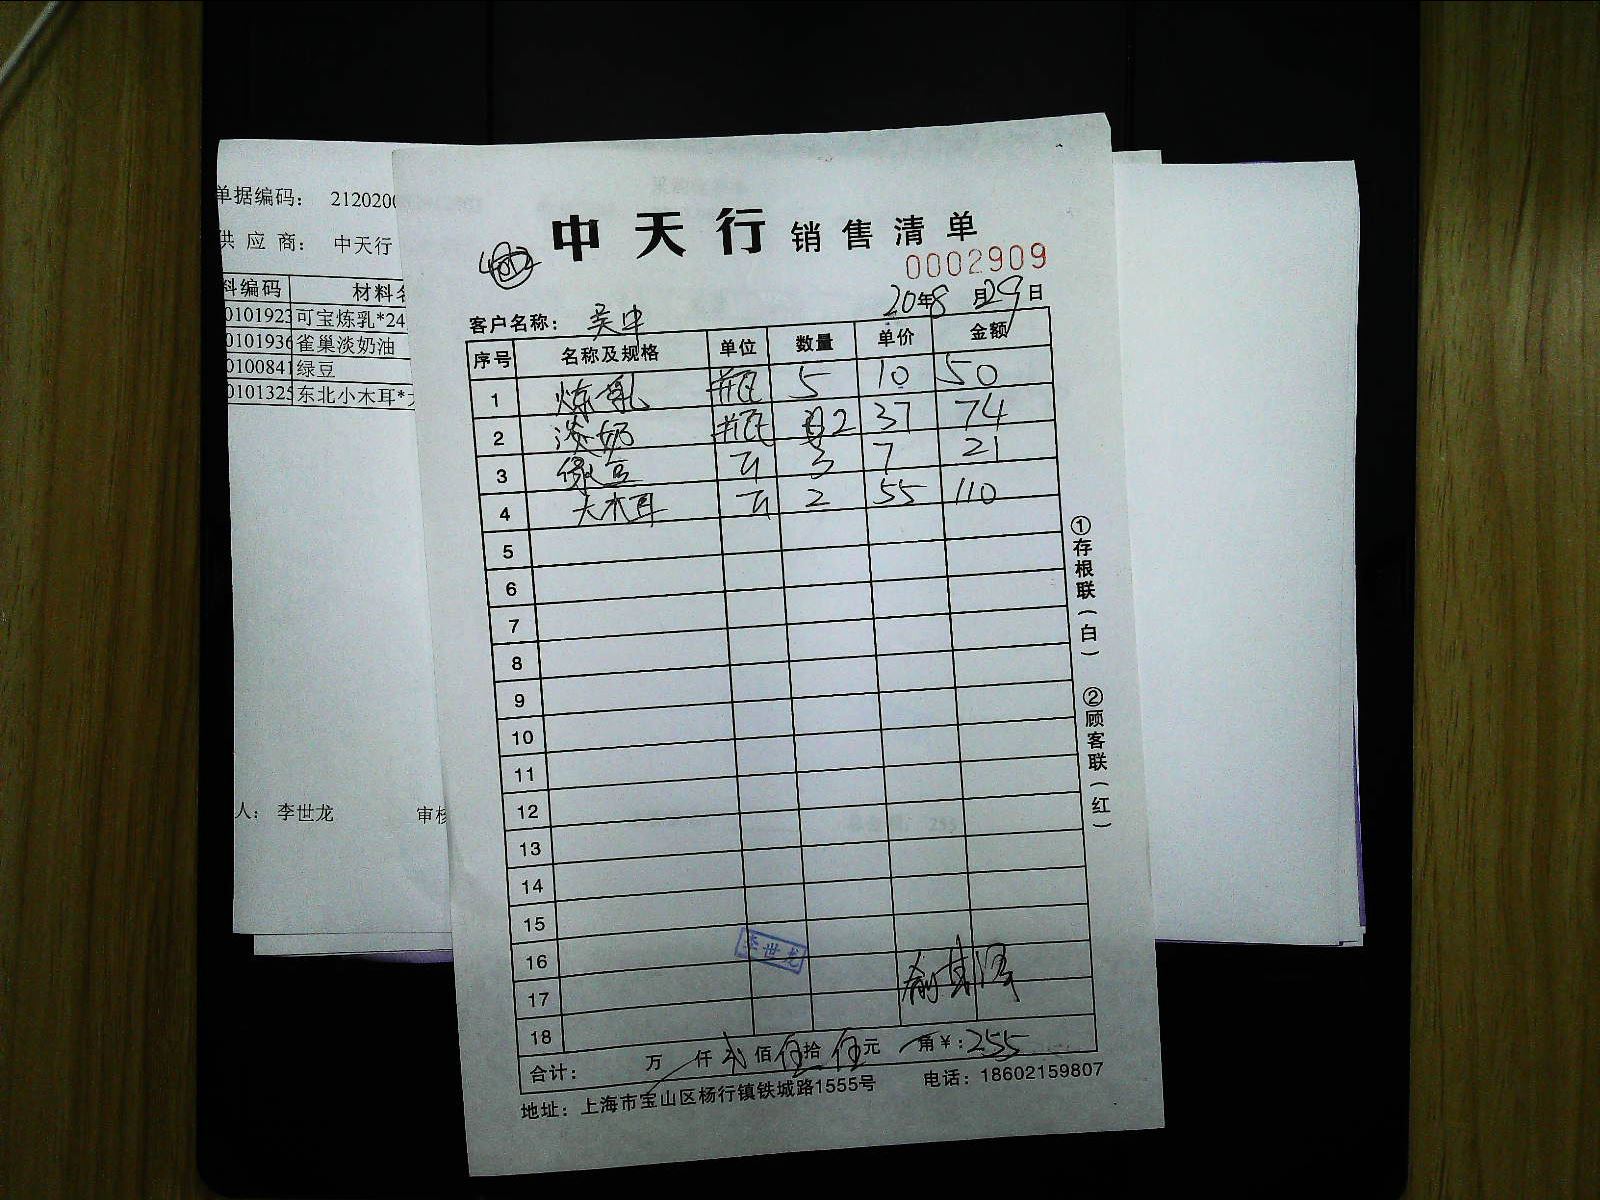 单据编码： 2120200
供 应 商： 中天行
料编码 材料名
0101923 可宝炼乳*24
0101936 雀巢淡奶油
0100841 绿豆
0101325 东北小木耳*大
人： 李世龙 审核
中天行 销售清单
0002909
客户名称： 吴中 20年8月29日
序号 名称及规格 单位 数量 单价 金额
1 炼乳 瓶 5 10 50
2 淡奶 瓶 2 37 74
3 绿豆 斤 3 7 21
4 大木耳 斤 2 55 110
5
6
7
8
9
10
11
12
13
14
15
16
17
18
李世龙
合计： 万 仟 贰 佰 伍 拾 伍 元 角 ¥：255
地址：上海市宝山区杨行镇铁城路1555号 电话：18602159807
①存根联（白） ②顾客联（红）